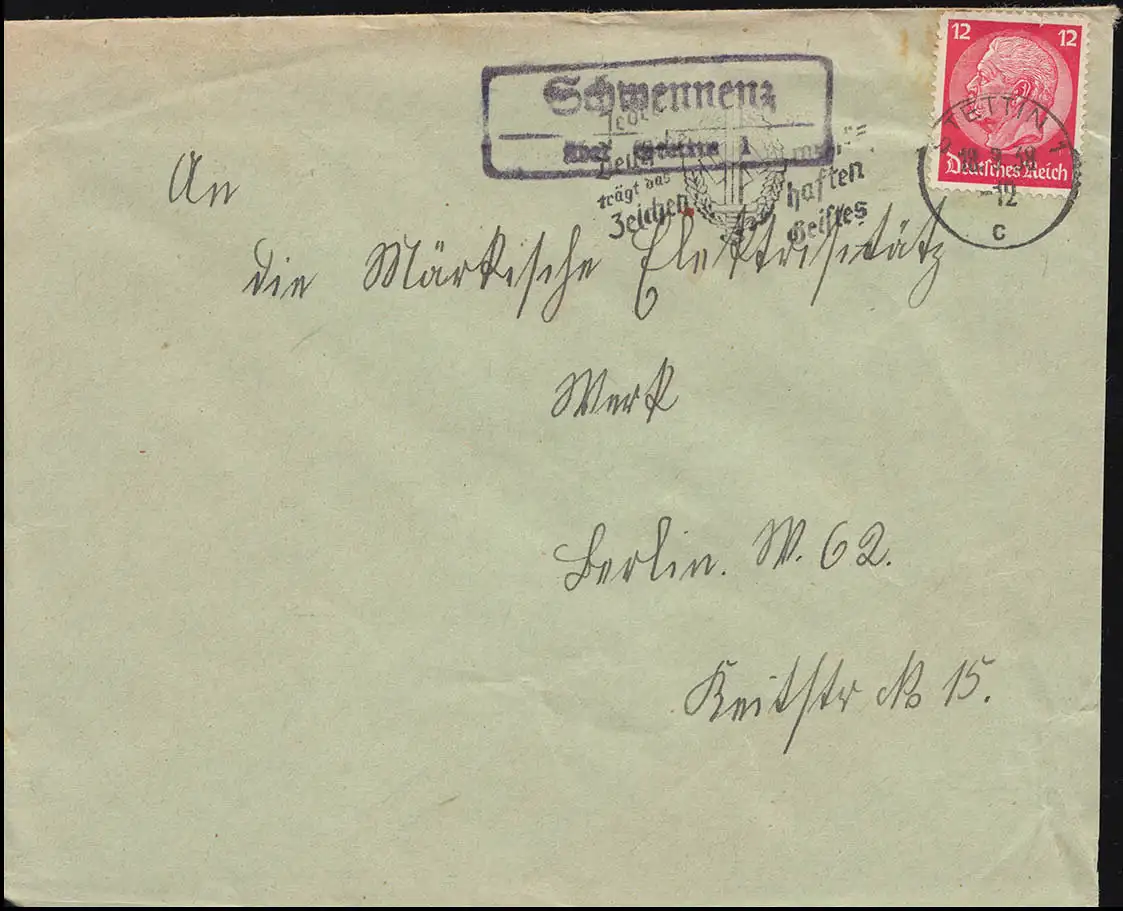 12 12
Deutsches Reich
STETTIN 1
-12
c
Schwennenz
über Stettin 1
Jeder
trägt das
Zeichen
haften
Geistes
An
die Märkische Elektrisitätz
Werk
Berlin. W. 62.
Keitstr No 15.